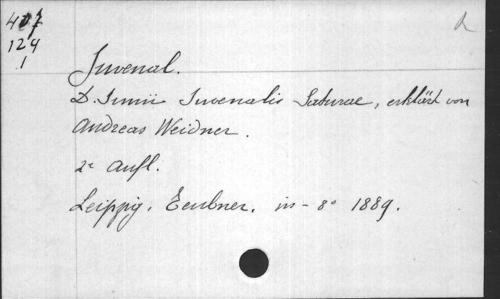 407
124
1
Juvenal.
D. Iunii Iuvenalis Saturae, erklärt von
Andreas Weidner.
2e Aufl.
Leipzig. Teubner. in-8° 1889.